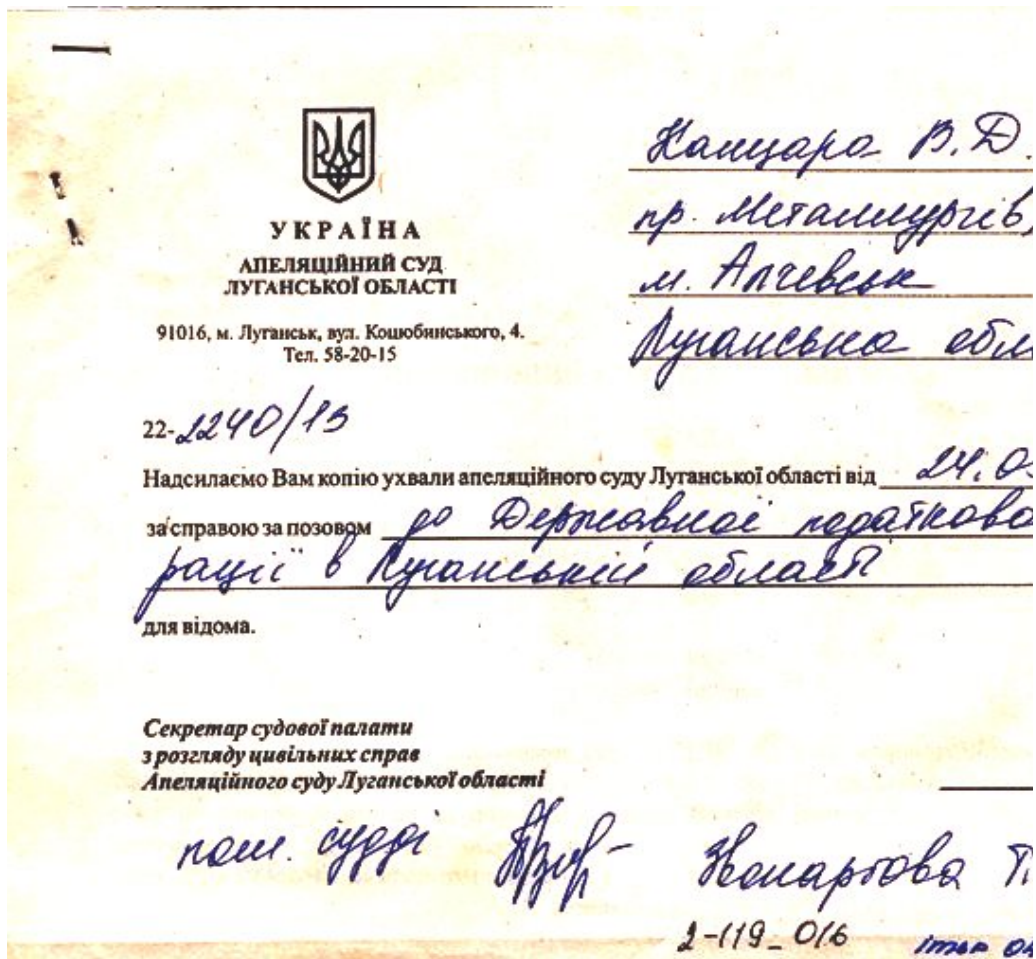 УКРАЇНА
АПЕЛЯЦІЙНИЙ СУД
ЛУГАНСЬКОЇ ОБЛАСТІ
91016, м. Луганськ, вул. Коцюбинського, 4.
Тел. 58-20-15
В.Д.
пр. Металлургів,
м. Алчевськ
Луганська обл
22-2240/13
Надсилаємо Вам копію ухвали апеляційного суду Луганської області від 24.0
за справою за позовом до Державної податково
рації в Луганській області
для відома.
Секретар судової палати
з розгляду цивільних справ
Апеляційного суду Луганської області
пом. судді Т.
2-119_016